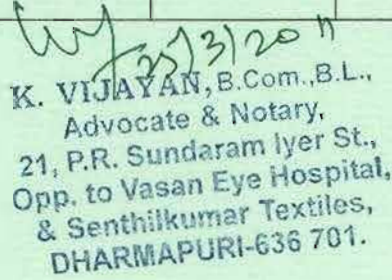 25/3/2011
K. VIJAYAN, B.Com., B.L.,
Advocate & Notary,
21, P.R. Sundaram Iyer St.,
Opp. to Vasan Eye Hospital,
& Senthilkumar Textiles,
DHARMAPURI-636 701.